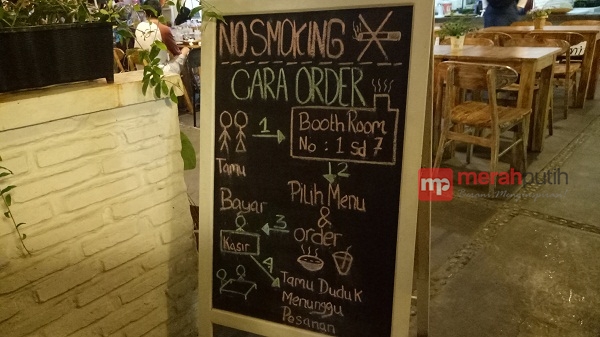 NO SMOKING
CARA ORDER
1
Booth Room
No : 1 sd 7
Tamu
2
Pilih Menu
&
order
3
Bayar
Kasir
4
Tamu Duduk
Menunggu
Pesanan
mp merahputih